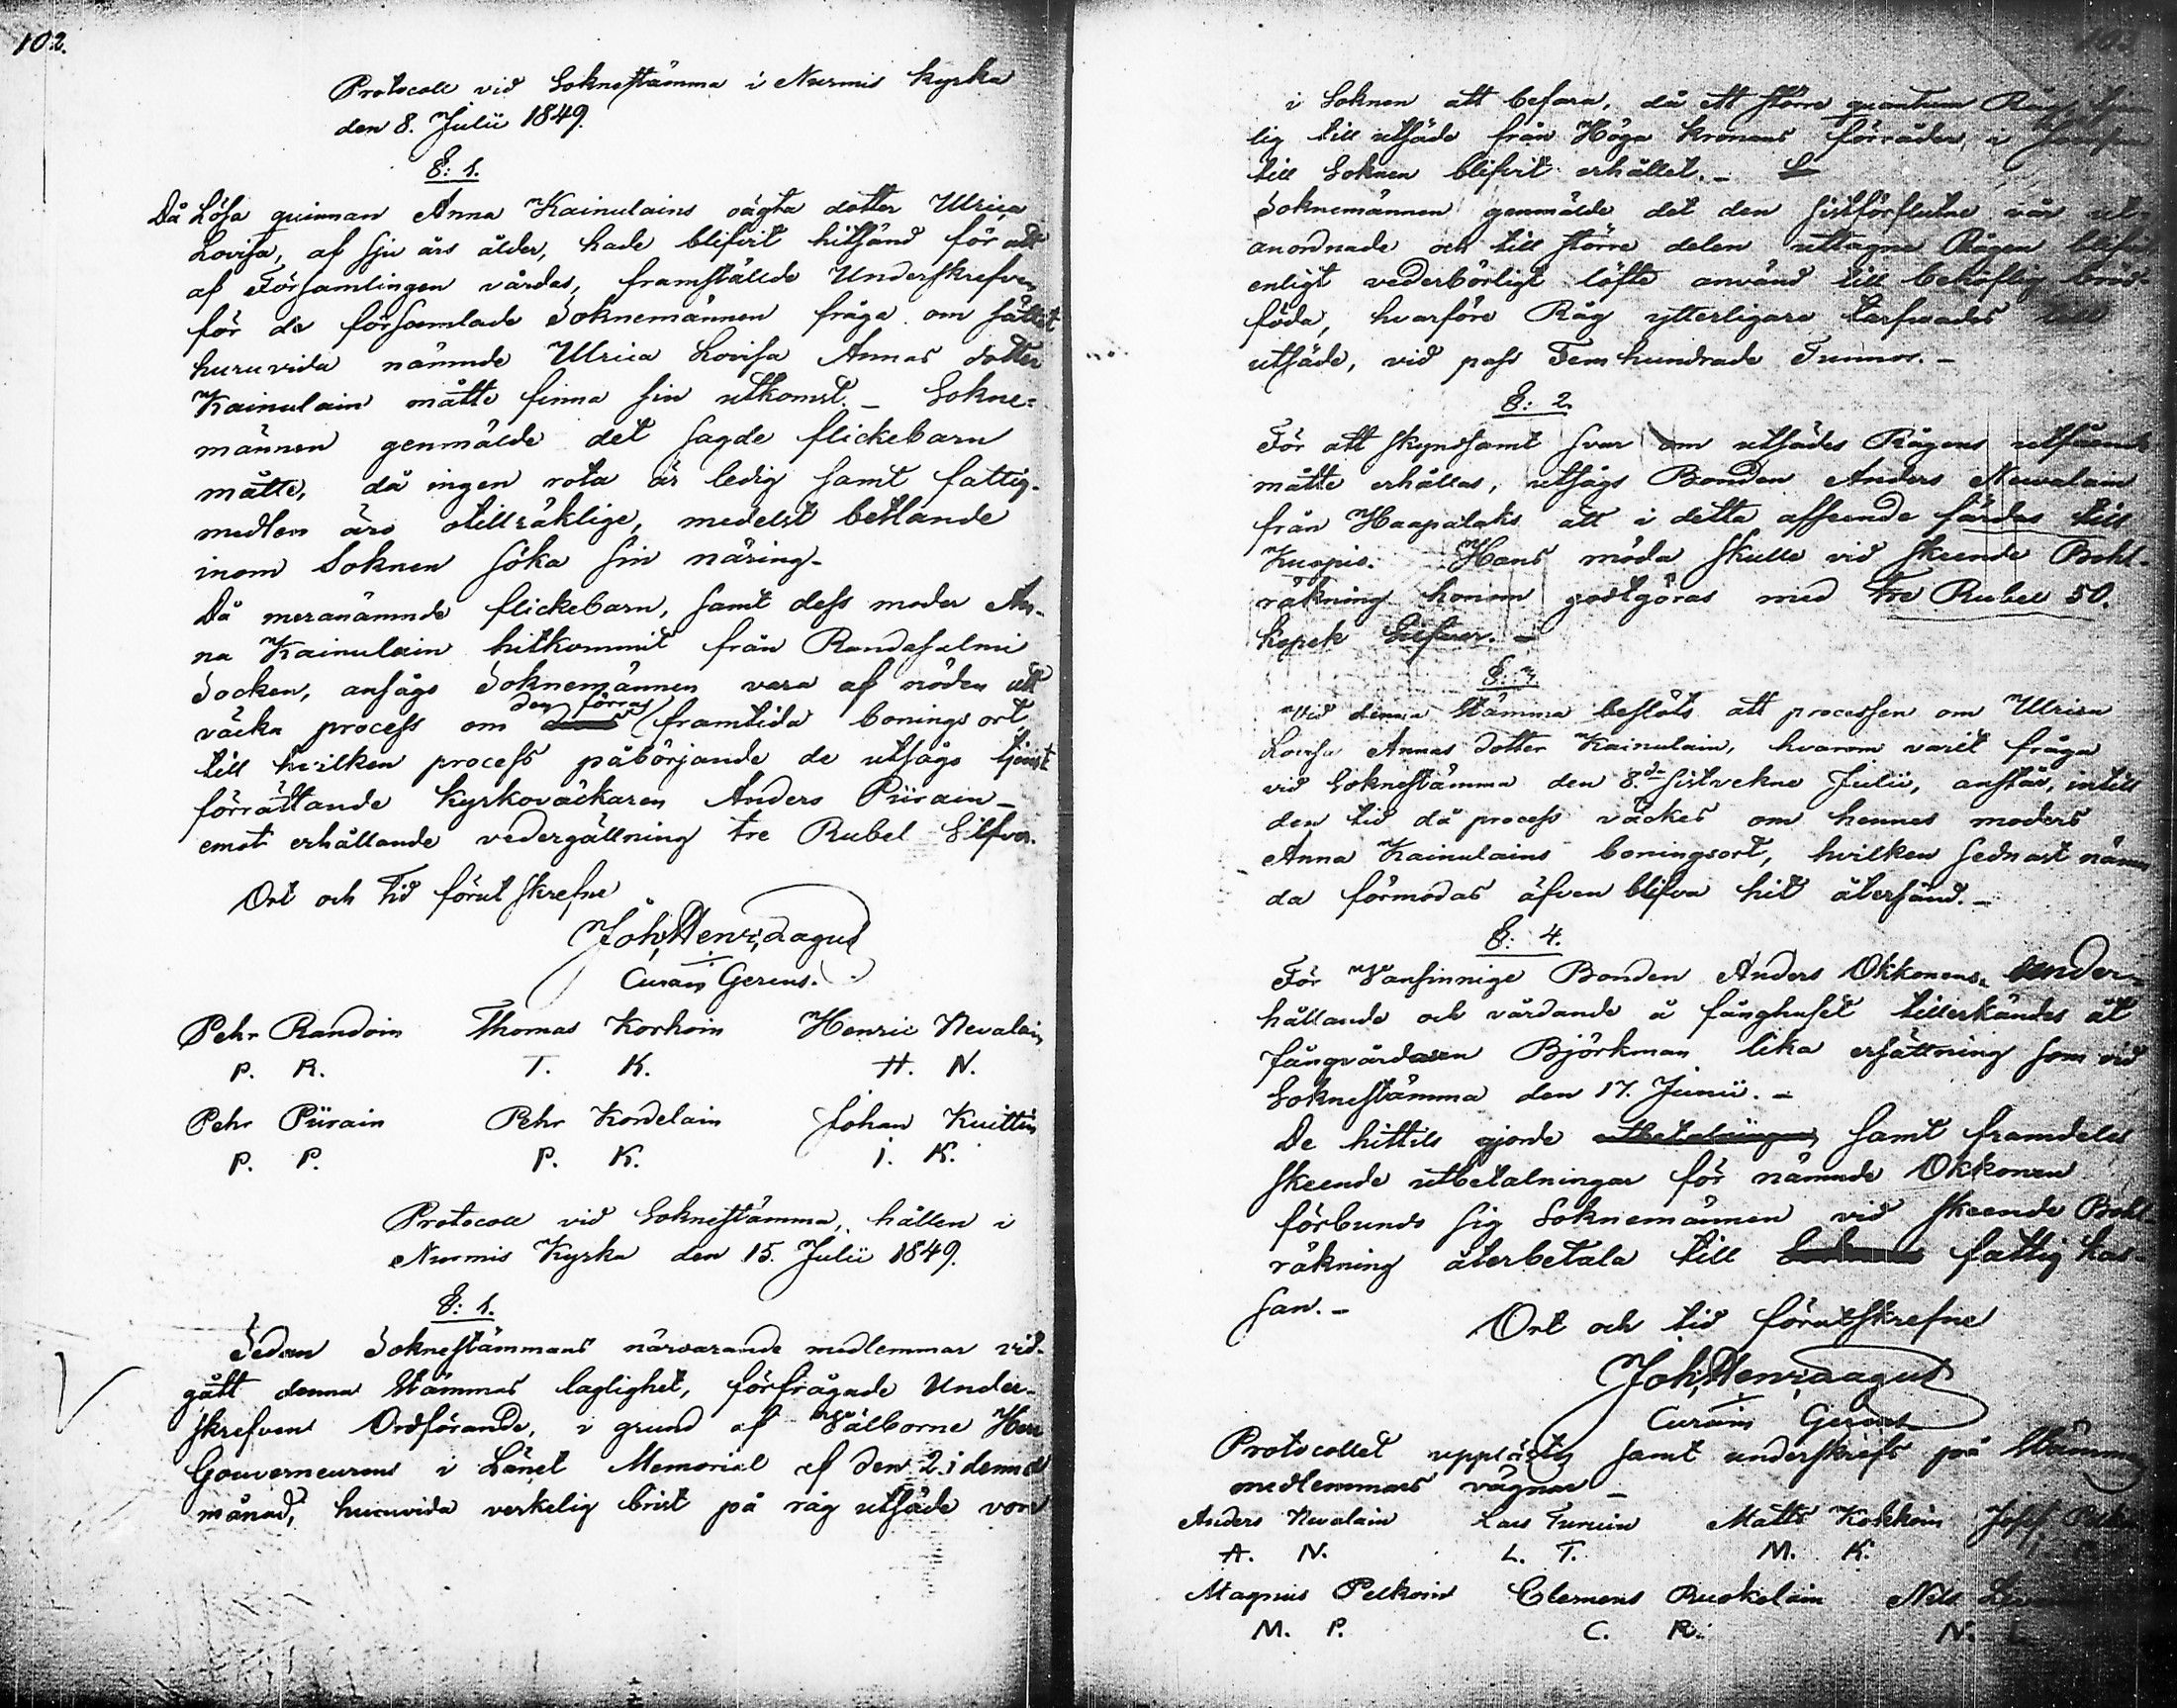 102.
Protocoll vid Soknestämma i Nurmis Kyrka
den 8. Julii 1849.
§: 1.
Då Lösa qvinnan Anna Kainulains oägta dotter Ulrica
Lovisa, af sju års ålder, hade blifvit hitsänd för att
af Församlingen vårdas, framställde Underskrefven
för de församlade Soknemännen fråga om sättet
huruvida nämnde Ulrica Lovisa Annas dotter
Kainulain måtte finna sin utkomst. _ Sokne-
männen genmälde det sagde flickebarn
måtte, då ingen rota är ledig samt fattig-
medlen äro otillräklige, medelst betlande
inom Soknen söka sin näring.
Då meranämnde flickebarn, samt dess moder An-
na Kainulain hitkommit från Randasalmi
Socken, ansågs Soknemännen vara af nöden att
väcka process om den förras framtida boningsort,
till hvilken process påbörjande de utsågo tjenst
förrättande Kyrkoväckaren Anders Piirain _
emot erhållande vedergällning tre Rubel Silfver.
Ort och Tid förut skrefne
Joh, Henr, Lagus
Curam Gerens.
Pehr Randoin Thomas Korhoin Henric Nevalain
P. R. T. K. H. N.
Pehr Piirain Pehr Kordelain Johan Kuittin
P. P. P. K. J. K.
Protocoll vid Soknestämma, hållen i
Nurmis Kyrka den 15. Julii 1849.
§: 1.
Sedan Soknestämmans närvarande medlemmar vid-
gått denna Stämmas laglighet, förfrågade Under-
skrefven Ordförande, i grund af Välborne Herr
Gouverneurens i Länet Memorial af den 2. i denna
månad, huruvida verkelig brist på råg utsäde vore
i Soknen att befara, då ett större quantum Råg
lig till utsäde från Höga Kronans förråder i
till Soknen blifvit erhållet. _
Soknemännen genmälde det den sistförflutne vår ut-
anordnade och till större delen uttagne Rågen
enligt vederbörligt löfte använd till behöflig bröd-
föda, hvarföre Råg ytterligare tarfvades till
utsäde, vid pass Fem hundrade Tunnor. _
§: 2.
För att skyndsamt svar om utsädes Rågens
måtte erhållas, utsågs Bonden Anders Nevalain
från Haapalaks att i detta afseende färdas till
Kuopio. Hans möda skulle vid skeende Bohl-
räkning honom godtgöras med Tre Rubel 50.
kopek Silfver. _
§: 3.
Vid denna Stämma beslöts att processen om Ulrica
Lovisa Annas dotter Kainulain, hvarom varit fråga
vid Soknestämma den 8.de sistvekne Julii, anstår, intill
den tid då process väckes om hennes moders
Anna Kainulains boningsort, hvilken sednast nämn
da förmodas äfven blifva hit återsänd. _
§: 4.
För Vansinnige Bonden Anders Okkonens under-
hållande och vårdande å fånghuset tillerkändes åt
fångvårdaren Björkman lika ersättning som vid
Soknestämma den 17. Junii. _
De hittils gjorde utbetalningar samt framdeles
skeende utbetalningar för nämnde Okkonen
förbundo sig Soknemännen vid skeende Bohl-
räkning återbetala till fattig kas-
san. _
Ort och tid förutskrefne
Joh, Henr, Lagus
Curam Gerens
Protocollet uppläst, samt underskrefs på Stämmo
medlemmars vägnar _
Anders Nevalain Lars Turuin Matts Kokkoin Jos,
A. N. L. T. M. K.
Magnus Pelkoin Clemens Ruokelain Nils
M. P. C. R. N. L